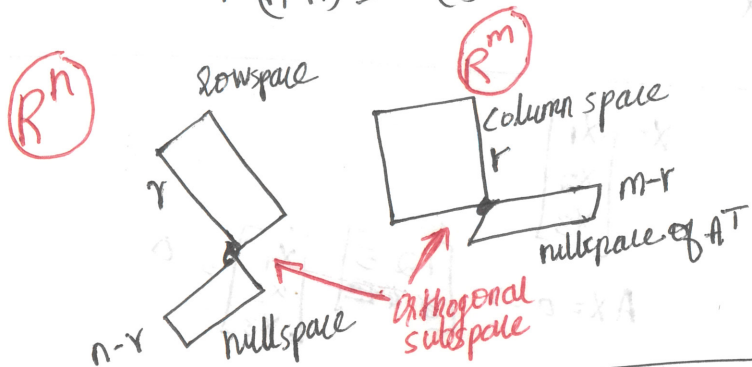 R^n
Rowspace
r
n-r
nullspace
R^m
column space
r
m-r
nullspace of A^T
Orthogonal
subspace